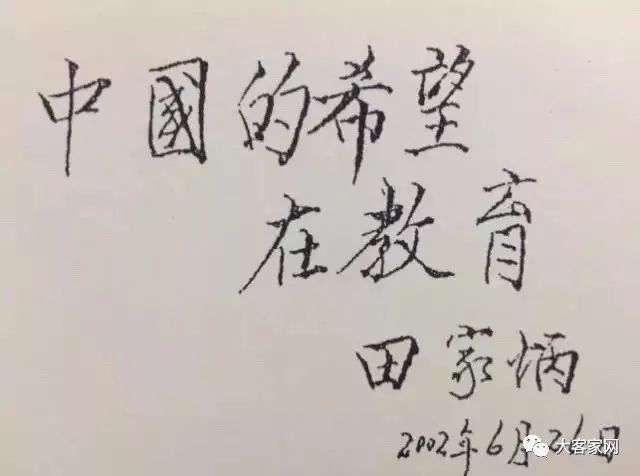 中國的希望
在教育
田家炳
2002年6月26日
大客家网